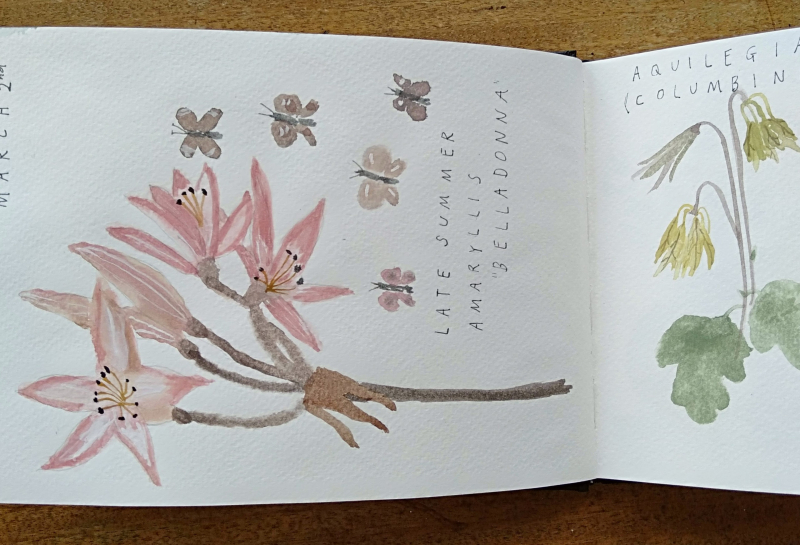 MARCH 2nd
LATE SUMMER
AMARYLLIS
"BELLADONNA"
AQUILEGIA
(COLUMBIN